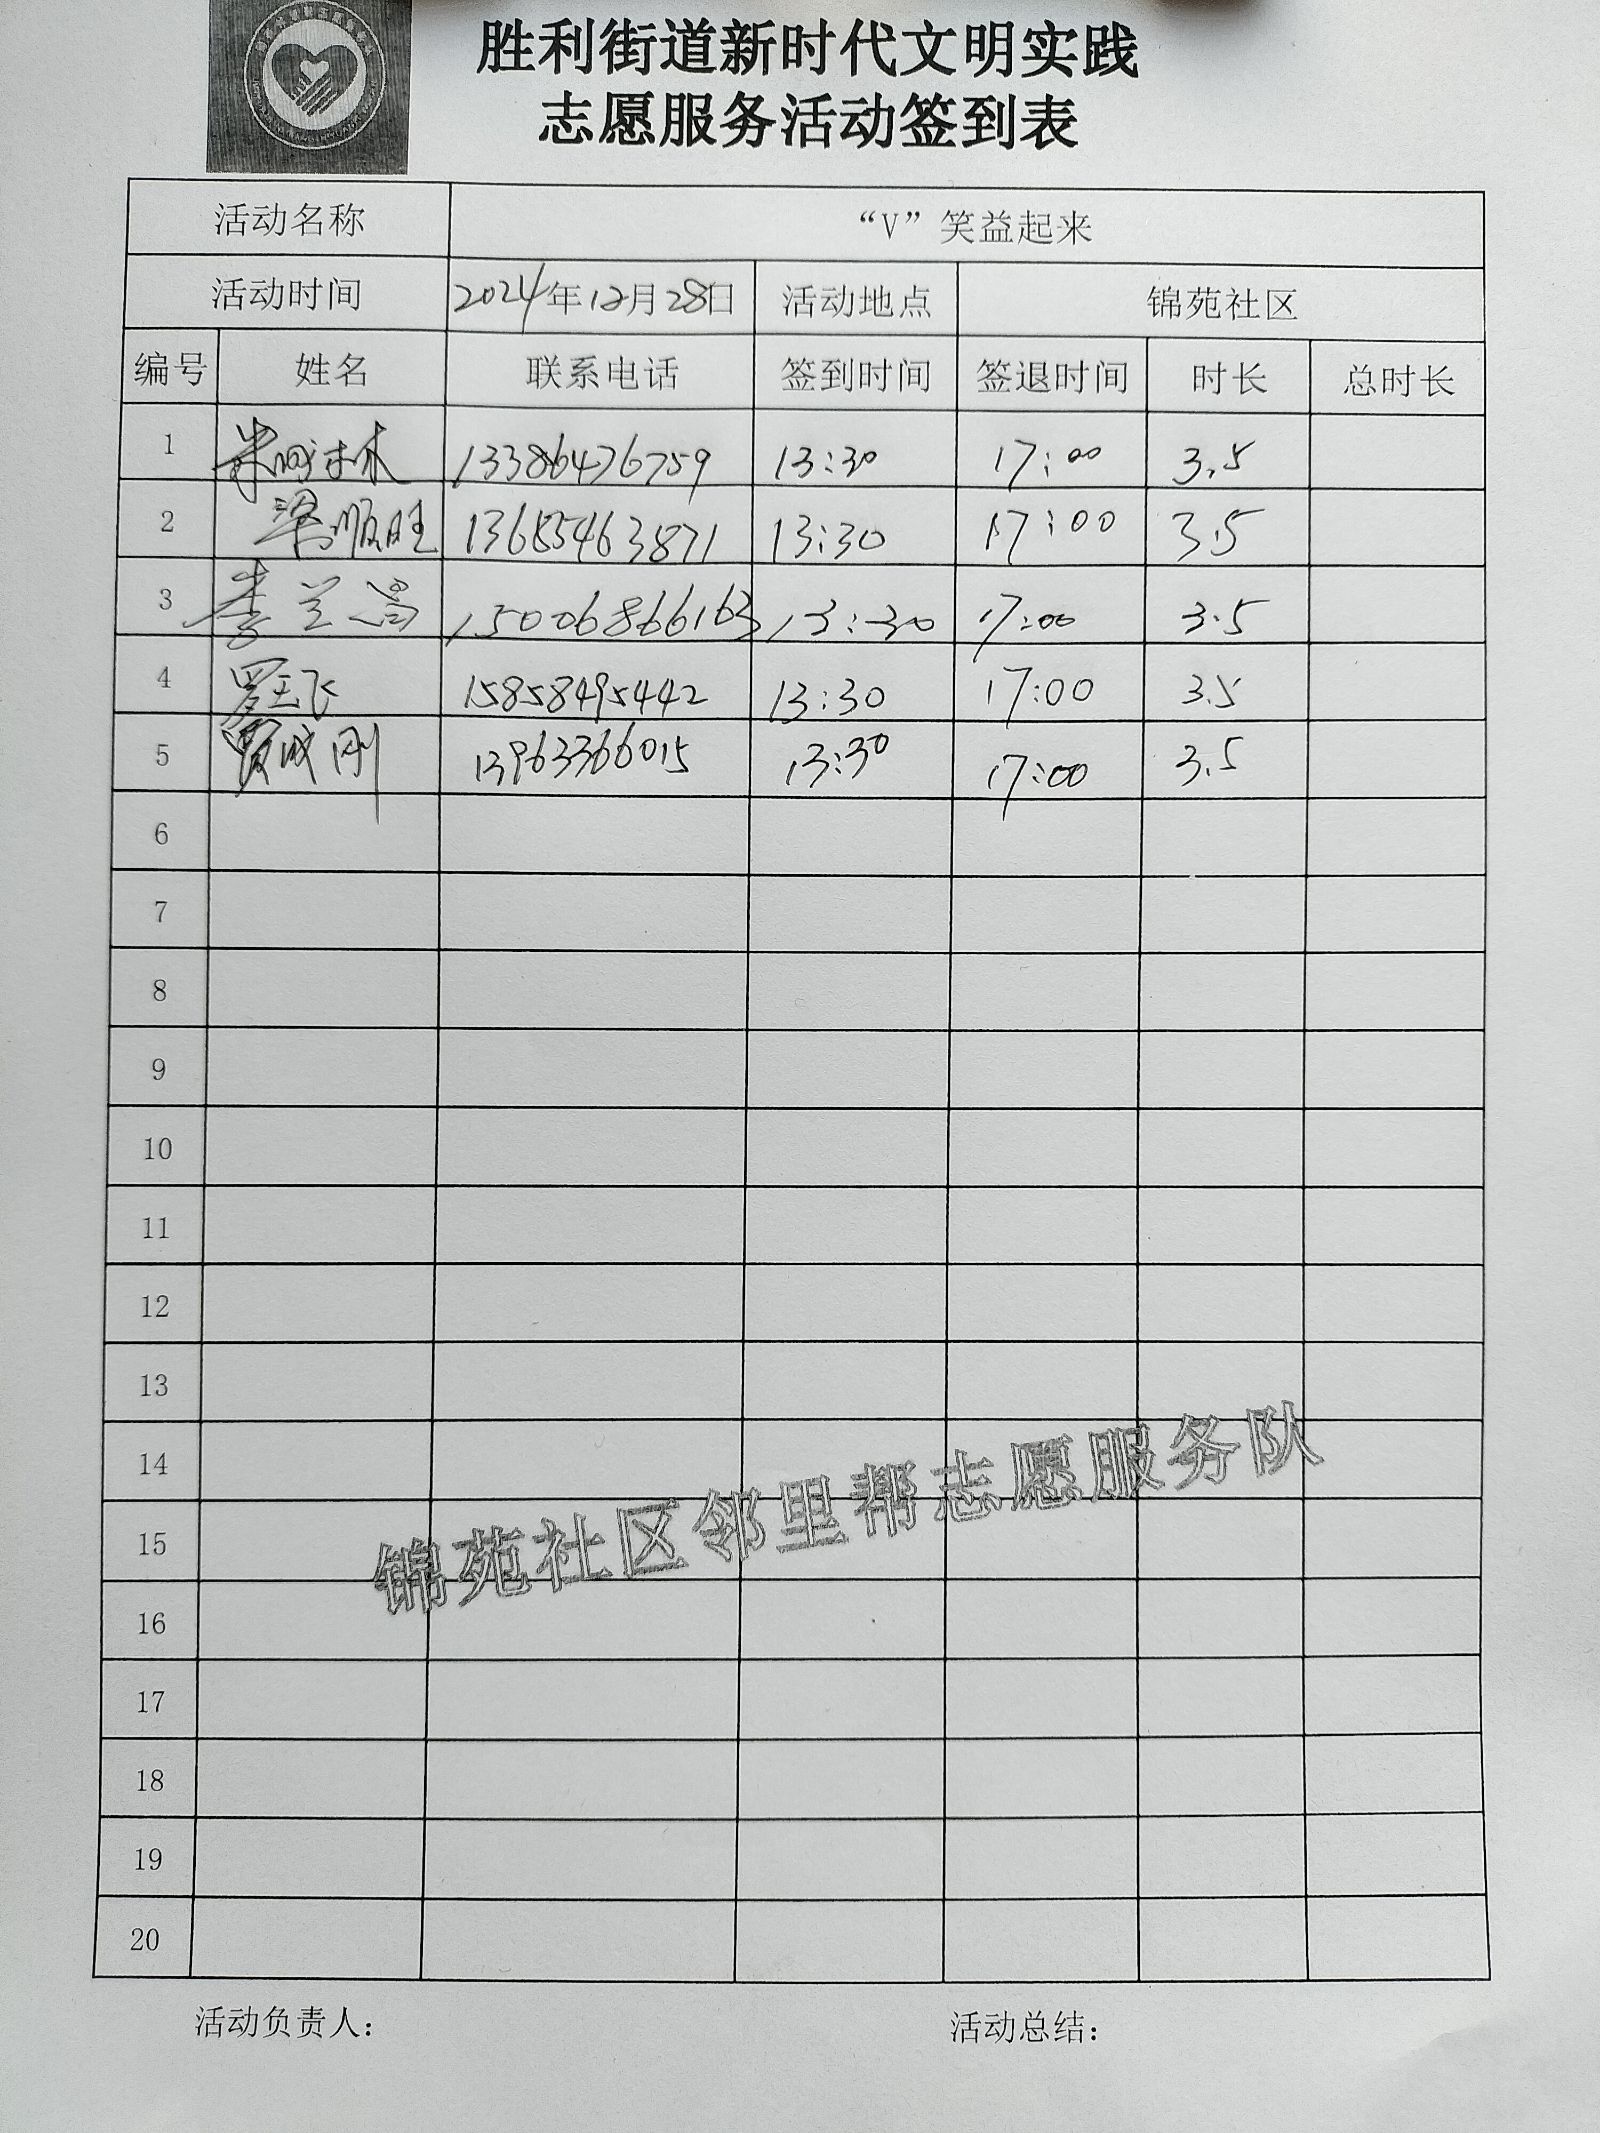 胜利街道新时代文明实践
志愿服务活动签到表
活动名称 “V”笑益起来
活动时间 2024年12月28日 活动地点 锦苑社区
编号 姓名 联系电话 签到时间 签退时间 时长 总时长
1 13386476759 13:30 17:00 3.5
2 梁顺旺 13:30 17:00 3.5
3 李兰 15006866163 13:30 17:00 3.5
4 罗玉飞 15858495442 13:30 17:00 3.5
5 贾成刚 13963366015 13:30 17:00 3.5
6
7
8
9
10
11
12
13
14
15
16
17
18
19
20
锦苑社区邻里帮志愿服务队
活动负责人: 活动总结: